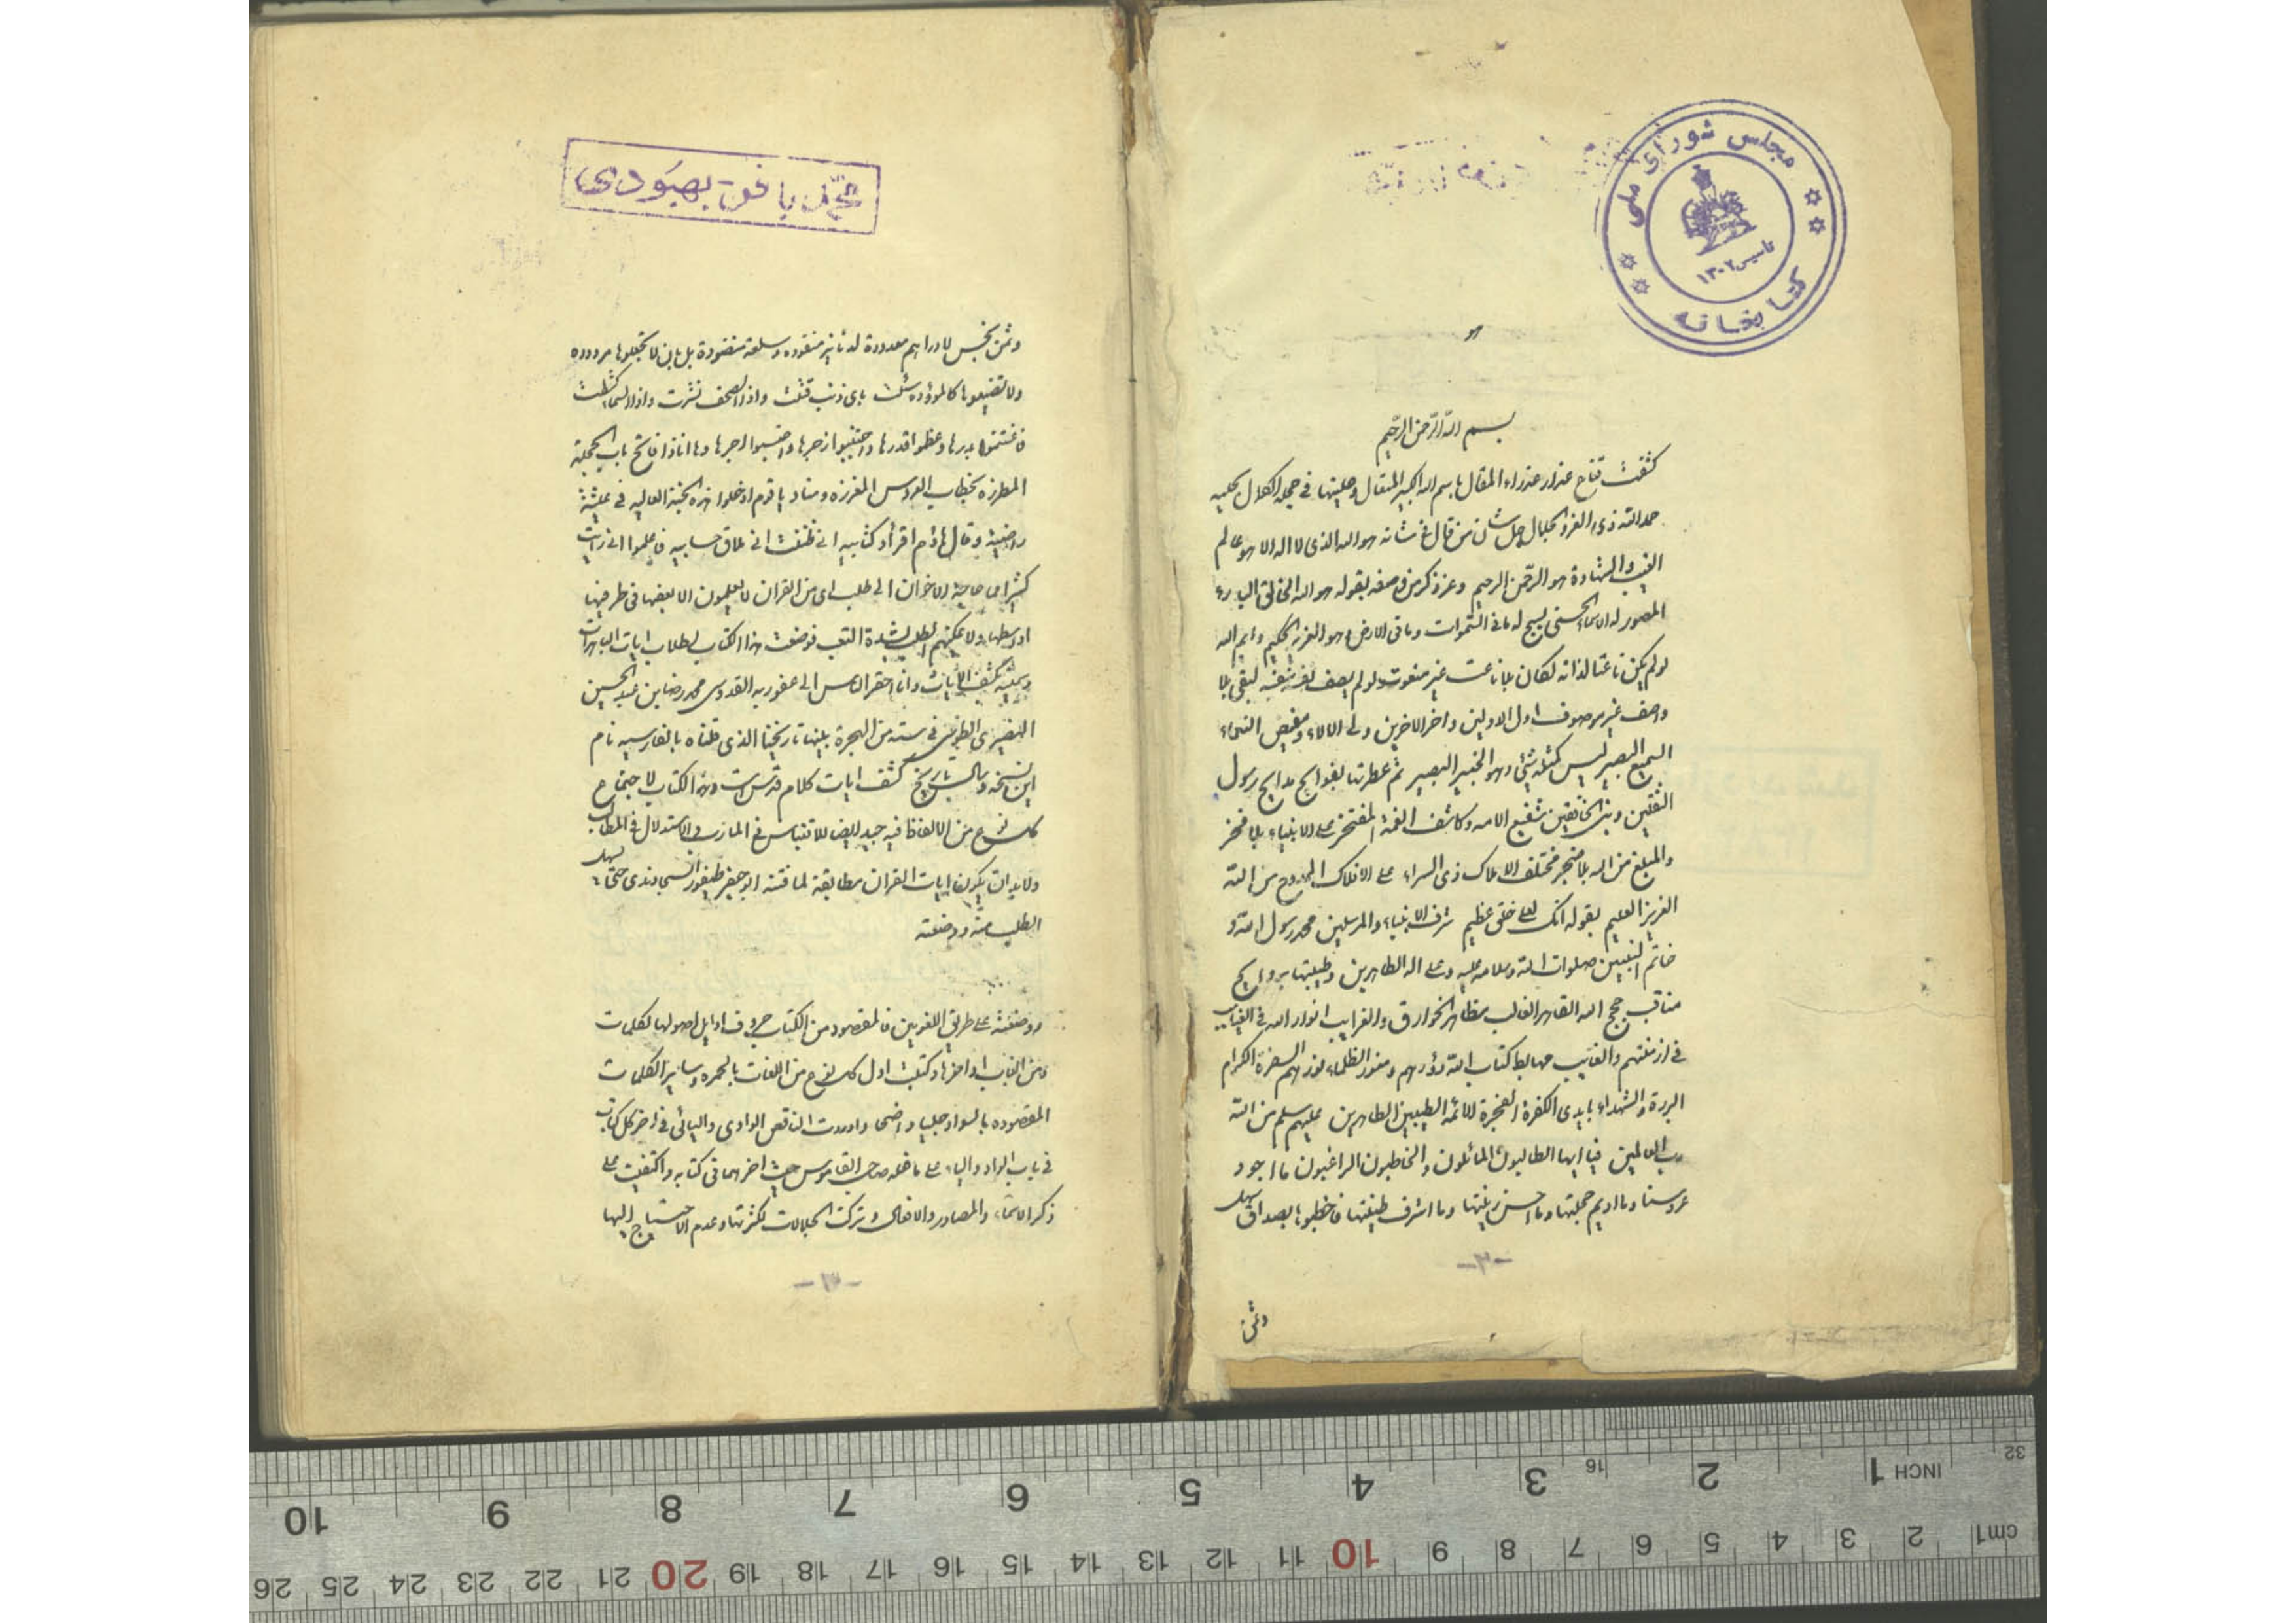 مجلس شورای ملی
کتابخانه
تاسیس ۱۳۰۲
بسم الله الرحمن الرحیم
کشفت قناع عذار عذراء المقال باسم الله الکبیر المتعال و حلیتها فی حجلة الکلال بحلیه
حمد الله ذی العز و الجلال جل شان من قال فی شانه هو الله الذی لا اله الا هو عالم
الغیب و الشهادة هو الرحمن الرحیم و عز ذکر من وصفه بقوله هو الله الخالق الباریء
المصور له الاسماء الحسنی یسبح له ما فی السموات و ما فی الارض و هو العزیز الحکیم و ایم الله
لو لم یکن ناعتا لذاته لکان بلا ناعت غیر منعوت و لو لم یصف نفسه لبقی بلا
واصف غیر موصوف اول الاولین و اخر الاخرین ولی الالاء و مفیض النعماء
السمیع البصیر لیس کمثله شیء و هو الخبیر البصیر ثم عطرتها بفوایح مدایح رسول
الثقلین و نبی الخافقین شفیع الامه و کاشف الغمة المفتخر علی الانبیاء بلا فخر
و المبلغ من اله بلا ضجر مختلف الاملاک ذی السراء علی الافلاک الممدوح من الله
العزیز العلیم بقوله انک لعلی خلق عظیم شرف الانبیاء و المرسلین محمد رسول الله و
خاتم النبیین صلوات الله و سلامه علیه و علی اله الطاهرین و طیبتها بروایح
مناقب حجج الله القاهر الغالب مظاهر الخوارق و الغرایب انوار الله فی الغیاهب
فی ازمنتهم و الغایب مهابط کتاب الله و منور الظلماء نورهم السفرة الکرام
البررة و الشهداء بایدی الکفرة الفجرة الائمة الطیبین الطاهرین علیهم سلم من الله
رب العالمین فیا ایها الطالبون المائلون و الخاطبون الراغبون ما اجود
عروسنا و ما ادیم حجلتها و ما احسن زینتها و ما اشرف طینتها فاخطبوها بصداق سهل
-۲-
وثمن
محمد باقر بهبودی
و ثمن بخس لا دراهم معدودة لدنانیر منقوده و سلعة منضودة بل بان لا تجعلوها مردوده
و لا تضیعوها کالموؤده سئلت بای ذنب قتلت و اذا الصحف نشرت و اذا السماء کشطت
فاغتنموا بدرها و عظموا قدرها و اجتنبوا زجرها و احتسبوا اجرها و ها انا ذا فاتح باب الحجلة
المطرزه بخطاب العروس المغرزه و مناد یا قوم ادخلوا هذه الجنة العالیه فی عیشة
راضیة و قال هاؤم اقرؤا کتابیه انی ظننت انی ملاق حسابیه فاعلموا انی رایت
کثیرا ما حاجة الاخوان الی طلب ای من القران لا یعلمون الا بعضها فی طرفیها
او وسطها و لا یمکنهم الطلب لشدة التعب فوضعت هذا الکتاب لطلاب ایات الباهرات
و سمیته کشف الایات و انا احقر الناس الی عفو ربه القدوس محمد رضا بن عبد الحسین
النصیری الطوسی فی سنة من الهجرة بینها تاریخنا الذی قلناه بالفارسیه نام
این نسخه و سال تاریخ کشف ایات کلام قدس است و هذا الکتاب لاجتماع
کل نوع من الالفاظ فیه جید ایضا للاقتباس فی المارب و الاستدلال فی المطالب
و لا بد ان یکون ایات القران مطابقة لما قننه ابو جعفر طیفور السجاوندی حتی یسهل
الطلب منه و وضعته
و وضعته علی طریق اللغویین فالمقصود من الکتاب حروف اوایل اصولها لکلمات
و من الباب اواخرها و کتبت اول کل نوع من اللغات بالحمره و سایر الکلمات
المقصوده بالسواد جلیا واضحا و اوردت الناقص الواوی و الیائی فی اخر کل کتاب
فی باب الواو و الیاء علی ما فعله صاحب القاموس حیث اخرهما فی کتابه و اکتفیت علی
ذکر الاسماء و المصادر و الافعال و ترکت الجلالات لکثرتها و عدم الاحتیاج الیها
-۳-
INCH 1 2 3 4 5 6 7 8 9 10
16 32
cm1 2 3 4 5 6 7 8 9 10 11 12 13 14 15 16 17 18 19 20 21 22 23 24 25 26